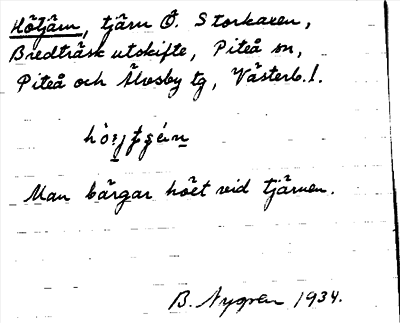 Hötjärn, tjärn Ö. Storkaxen,
Bredträsk utskifte, Piteå sn,
Piteå och Älvsby tg, Västerb. l.
Man bärgar höet vid tjärnen.
B. Nygren 1934.